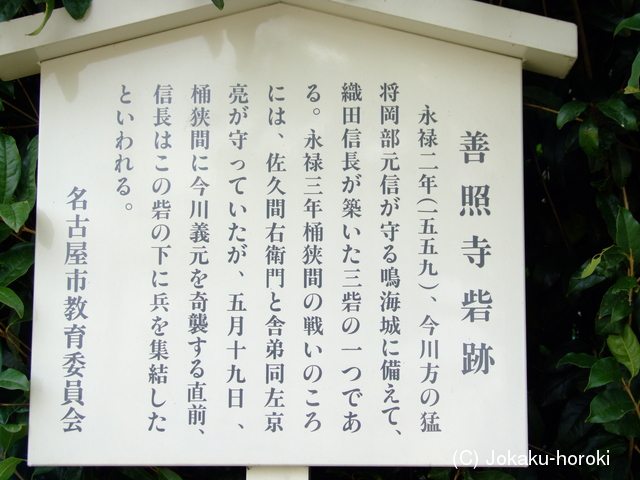 善照寺砦跡
永禄二年(一五五九)、今川方の猛
将岡部元信が守る鳴海城に備えて、
織田信長が築いた三砦の一つであ
る。永禄三年桶狭間の戦いのころ
には、佐久間右衛門と舎弟同左京
亮が守っていたが、五月十九日、
桶狭間に今川義元を奇襲する直前、
信長はこの砦の下に兵を集結した
といわれる。
名古屋市教育委員会
(C) Jokaku-horoki